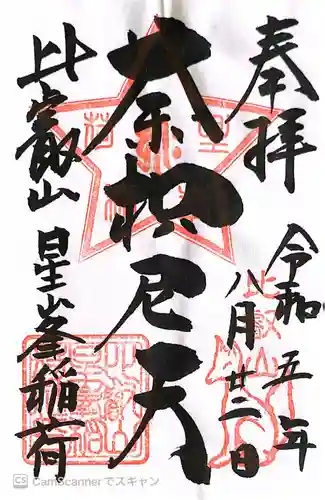 奉拝
令和五年
八月廿二日
荼枳尼天
比叡山 星峯稲荷
比叡山
CS CamScannerでスキャン